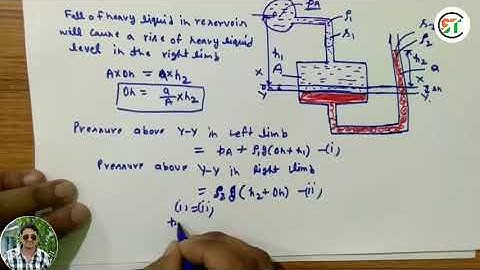 Fall of heavy liquid in reservoir
will cause a rise of heavy liquid
level in the right limb
A×Δh = a×h₂
Δh = a/A × h₂
Pressure above Y-Y in Left limb
= pA + ρ₁g(Δh+h₁) —(i)
Pressure above Y-Y in Right limb
= ρ₂g(h₂+Δh) —(ii)
(i) = (ii)
pA
ρ₁
S₁
h₁
A
X
Y
S₂
ρ₂
h₂
a
X
Δh
Y